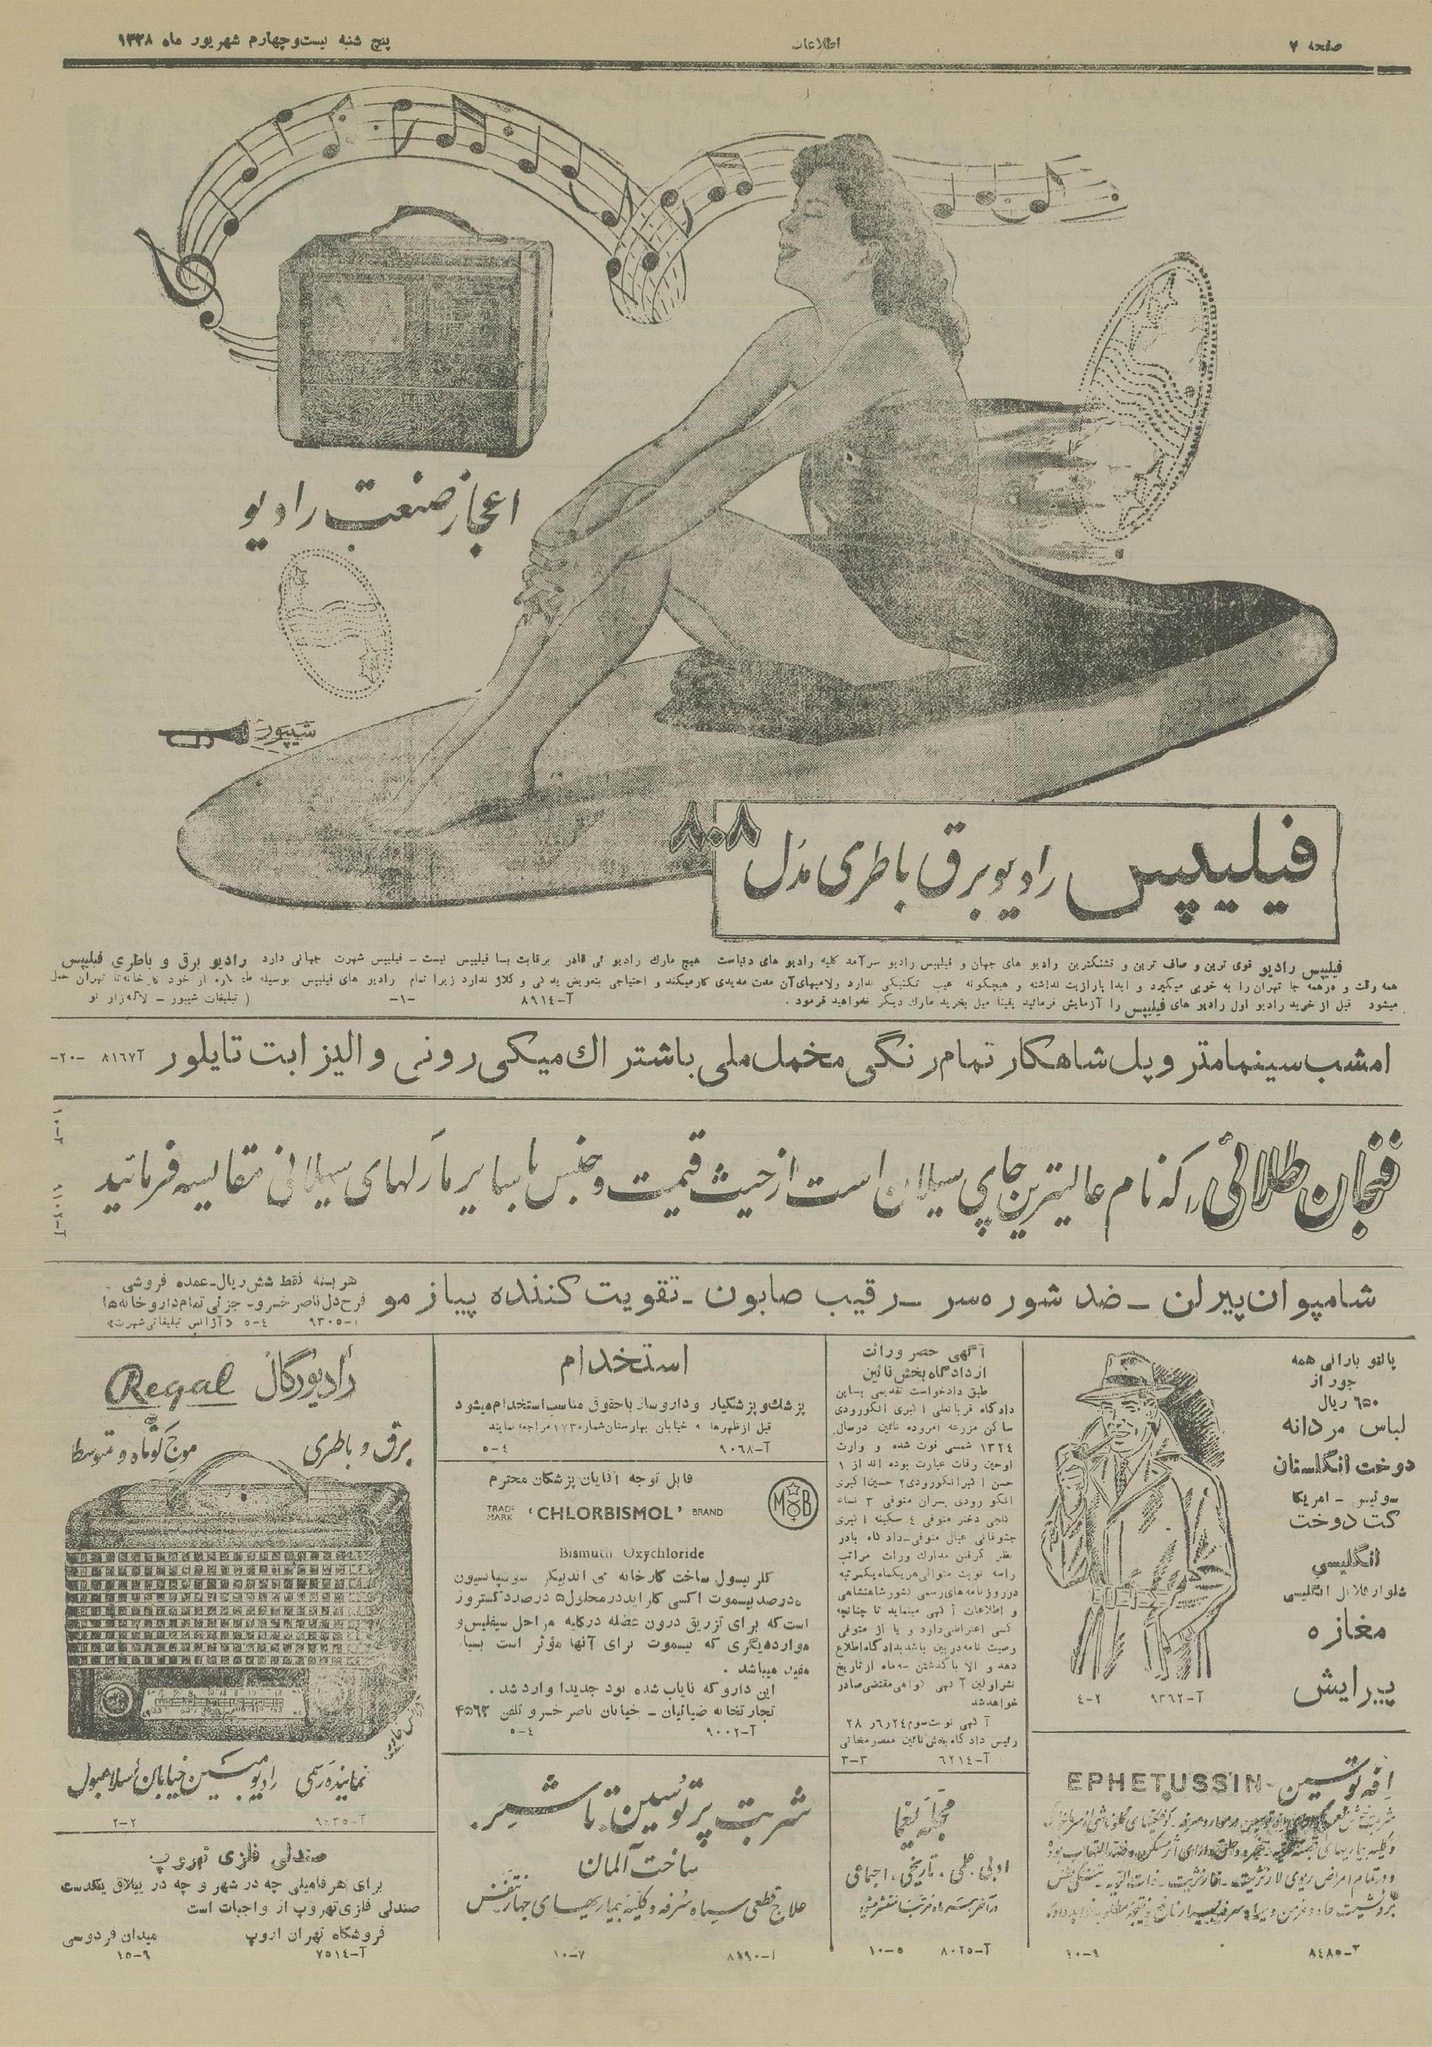 صفحه ۷
اطلاعات
پنج شنبه بیست و چهارم شهریور ماه ۱۳۲۸
اعجاز صنعت رادیو
شیپور
فیلیپس رادیو برق باطری مدل ۸۰۸
فیلیپس رادیو قوی ترین و صاف ترین و قشنگترین رادیو های جهان و فیلیپس رادیو سرآمد کلیه رادیو های دنیاست هیچ مارک رادیو ئی قادر برقابت با فیلیپس نیست ـ فیلیپس شهرت جهانی دارد رادیو برق و باطری فیلیپس
همه وقت و درهمه جا تهران را به خوبی میگیرد و ابدا پارازیت نداشته و هیچگونه عیب تکنیکی ندارد ولامپهای آن مدت مدیدی کار میکند و احتیاجی بتعویض یدکی و کلاژ ندارد زیرا تمام رادیو های فیلیپس بوسیله طیاره از خود کارخانه تا تهران حمل
میشود قبل از خرید رادیو اول رادیو های فیلیپس را آزمایش فرمائید یقینا میل بخرید مارک دیگر نخواهید فرمود . آ-۸۹۱۴ -۱- ( تبلیغات شیپور ـ لاله زار نو
امشب سینما متروپل شاهکار تمام رنگی مخمل ملی باشترک میکی رونی و الیزابت تایلور آ۸۱۶۷ -۲۰-
فنجان طلائی را که نام عالیترین چای سیلان است از حیث قیمت و جنس با سایر مارکهای سیلانی مقایسه فرمائید
۱۰-۲
آ-۹۱۰۲
شامپوان پیرلن ـ ضد شوره سر ـ رقیب صابون ـ تقویت کننده پیاز مو
هر بسته فقط شش ریال ـ عمده فروشی
فرح دل ناصر خسرو ـ جزئی تمام داروخانه ها
آ-۹۳۰۵ ۵-۴ «آژانس تبلیغاتی شهرت»
پالتو بارانی همه
جور از
۶۵۰ ریال
لباس مردانه
دوخت انگلستان
سوئیس ـ امریکا
کت دوخت
انگلیسی
شلوار فلانل انگلیسی
مغازه
پیرایش
آ-۹۳۶۲ ۴-۲
افه توسین - EPHETUSSIN
۸۴۸۵-۲ ۱۰-۹
آگهی حصر وراثت
از دادگاه بخش نائین
طبق دادخواست تقدیمی باین
دادگاه قربانعلی اکبری انکورودی
ساکن مزرعه امروده نائین در سال
۱۳۲۴ شمسی فوت شده و وارث
او حین وفات عبارت بوده اند از ۱
حسن اکبر انکورودی ۲ حسین اکبری
انکورودی پسران متوفی ۳ نساء
دختر متوفی ۴ سکینه اکبری
جشوقانی عیال متوفی ـ دادگاه با در
نظر گرفتن مدارک وراث مراتب
را سه نوبت متوالی هر یکماه یکمرتبه
در روزنامه های رسمی کشور شاهنشاهی
و اطلاعات آگهی مینماید تا چنانچه
کسی اعتراضی دارد و یا از متوفی
وصیت نامه در بین باشد بدادگاه اطلاع
دهد و الا با گذشتن سه ماه از تاریخ
نشر اولین آگهی گواهی مقتضی صادر
خواهد شد
آگهی نوبت سوم ۲۴ر۶ر ۲۸
رئیس دادگاه بخش نائین
آ-۶۲۱۴ ۳-۳
مجله یغما
ادبی . علمی . تاریخی . اجتماعی
در آخر هر ماه مرتبا منتشر میشود
آ-۸۰۲۵ ۱۰-۵
استخدام
پزشک و پزشکیار و داروساز با حقوق مناسب استخدام میشود
قبل از ظهرها به خیابان بهارستان شماره ۱۷۳ مراجعه نمایند
آ-۹۰۶۸ ۵-۴
قابل توجه آقایان پزشکان محترم
TRADE MARK 'CHLORBISMOL' BRAND
M&B
Bismuth Oxychloride
کلربیسمول ساخت کارخانه می اندبیکر سوسپانسیون
ده درصد بیسموت اکسی کلراید در محلول ۵ درصد دکستروز
است که برای تزریق درون عضله در کلیه مراحل سیفلیس و
موارد دیگری که بیسموت برای آنها مؤثر است بسیار
مفید میباشد .
این دارو که نایاب شده بود جدیدا وارد شد .
تجارتخانه ضیائیان ـ خیابان ناصر خسرو تلفن ۴۵۶۳
آ-۹۰۰۲ ۵-۴
شربت پرتوسین تاشنر
ساخت آلمان
علاج قطعی سیاه سرفه و کلیه بیماریهای جهاز تنفس
۱۰-۷
رادیو رگال Regal
برق و باطری
موج کوتاه و متوسط
نماینده رسمی رادیو مبین خیابان اسلامبول
۲-۲
صندلی فلزی تهروپ
برای هر فامیلی چه در شهر و چه در ییلاق یکدست
صندلی فلزی تهروپ از واجبات است
فروشگاه تهران اروپ میدان فردوسی
آ-۷۵۱۴ ۱۵-۹